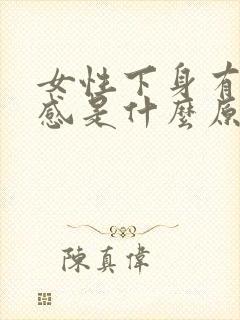 女性下身有
感是什麼原
陳真偉